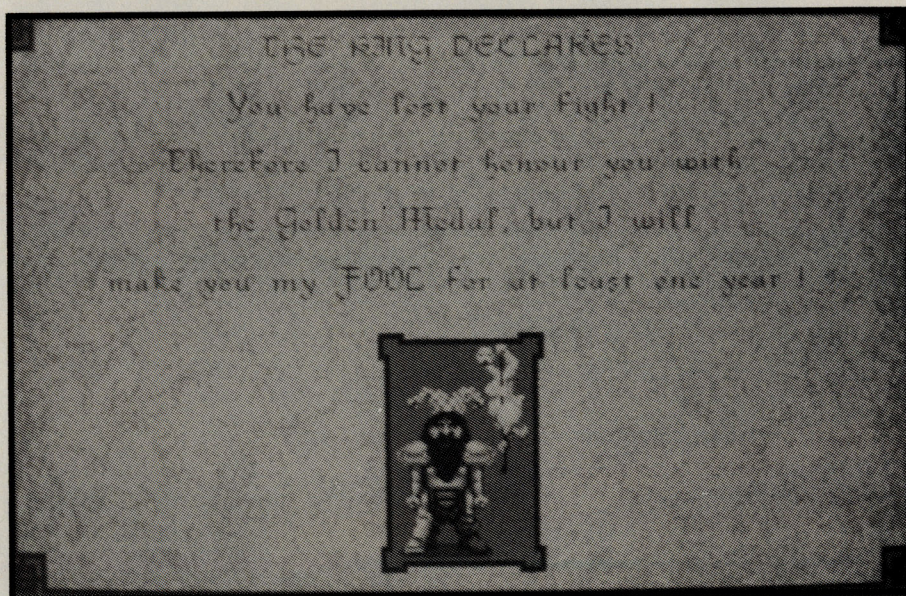 THE KING DECLARES
You have lost your fight !
Therefore I cannot honour you with
the Golden Medal, but I will
make you my FOOL for at least one year !